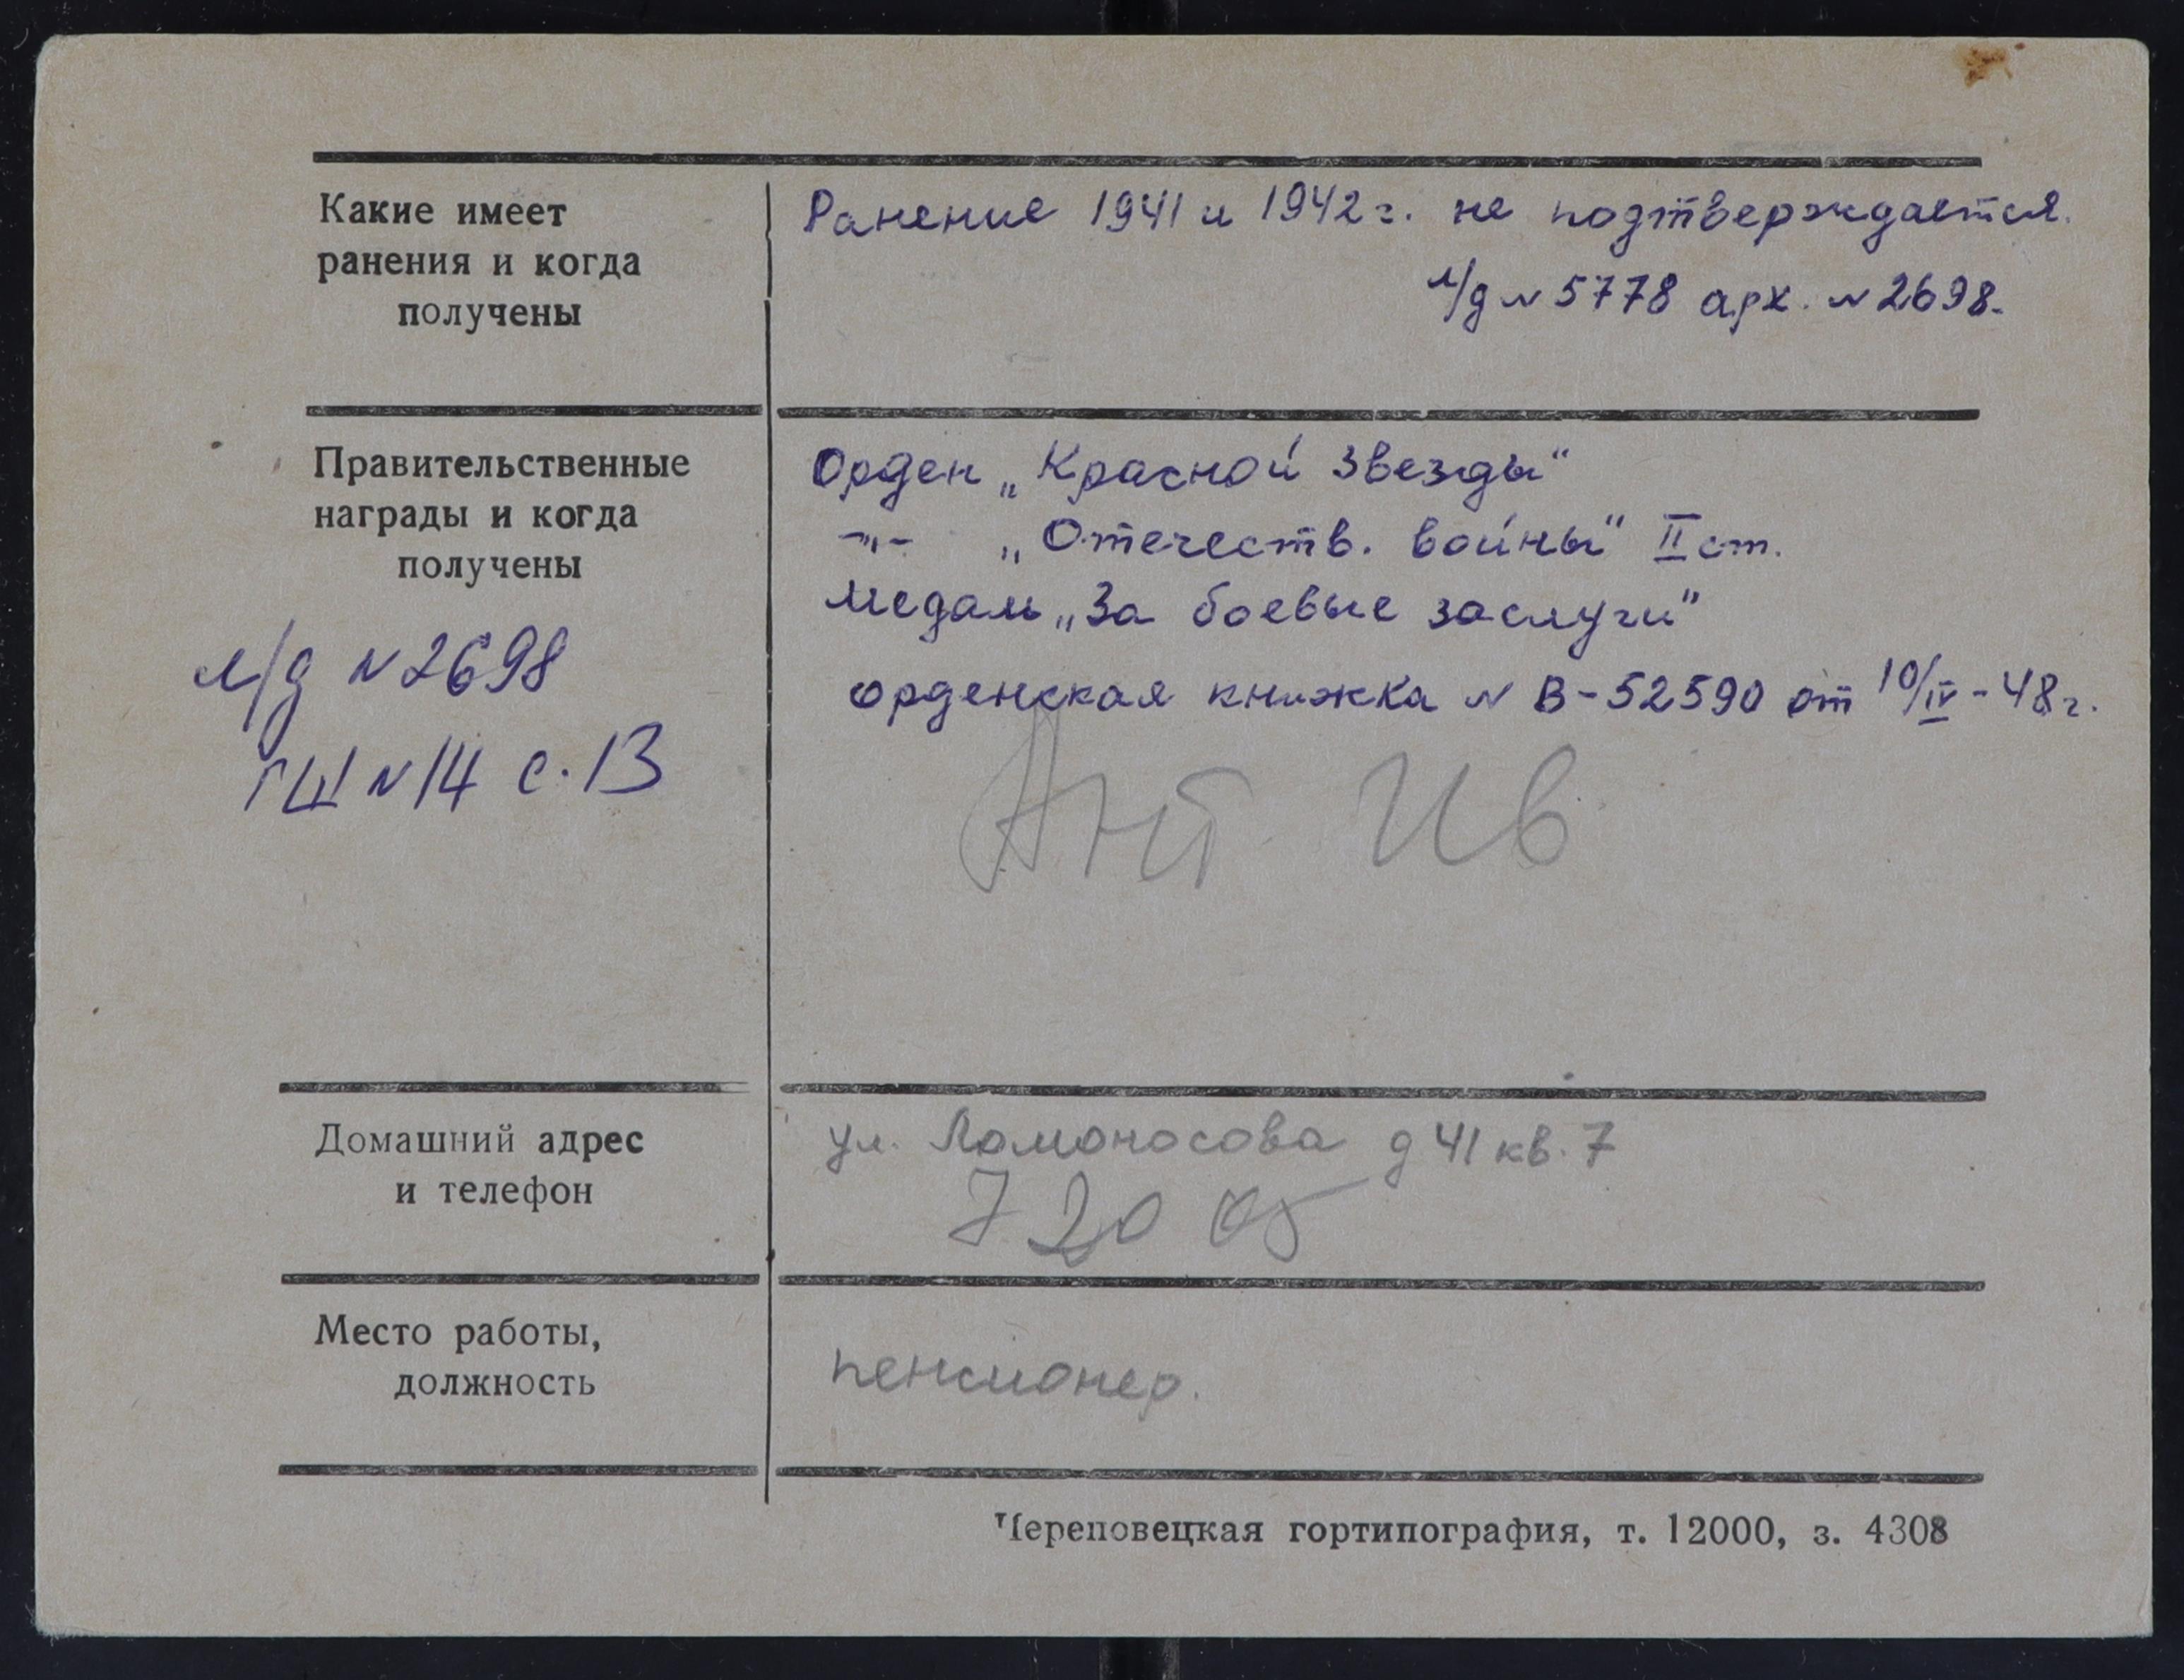 Какие имеет
ранения и когда
получены
Ранение 1941 и 1942 г. не подтверждается.
л/д № 5778 арх. № 2698.
Правительственные
награды и когда
получены
л/д № 2698
ГШ № 14 с. 13
Орден „Красной Звезды“
-"- „Отечеств. войны“ II ст.
Медаль „За боевые заслуги“
орденская книжка № В-52590 от 10/IV-48 г.
Ант Ив
Домашний адрес
и телефон
ул. Ломоносова д 41 кв. 7
7 20 05
Место работы,
должность
пенсионер.
Череповецкая гортипография, т. 12000, з. 4308